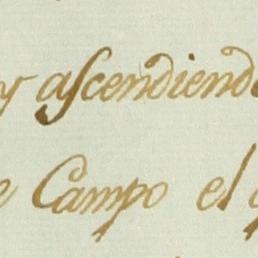 y ascendiend
e Campo el